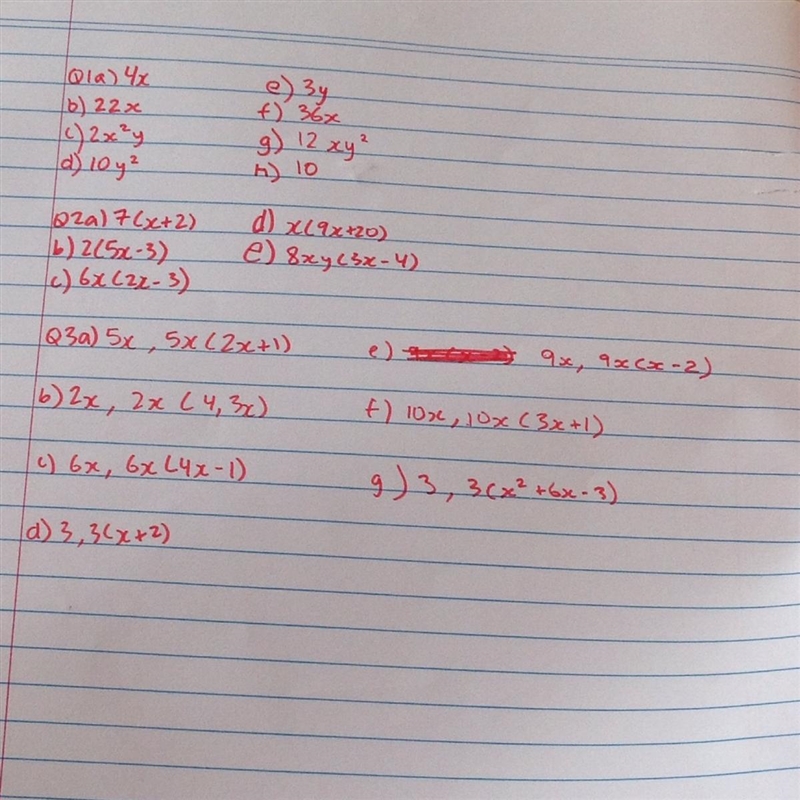 Q1a) 4x
b) 22x
c) 2x²y
d) 10y²
e) 3y
f) 36x
g) 12 xy²
h) 10
Q2a) 7(x+2)
b) 2(5x-3)
c) 6x(2x-3)
d) x(9x+20)
e) 8xy(3x-4)
Q3a) 5x, 5x(2x+1)
b) 2x, 2x (4, 3x)
c) 6x, 6x(4x-1)
d) 3, 3(x+2)
e) 9x, 9x(x-2)
f) 10x, 10x (3x+1)
g) 3, 3(x²+6x-3)